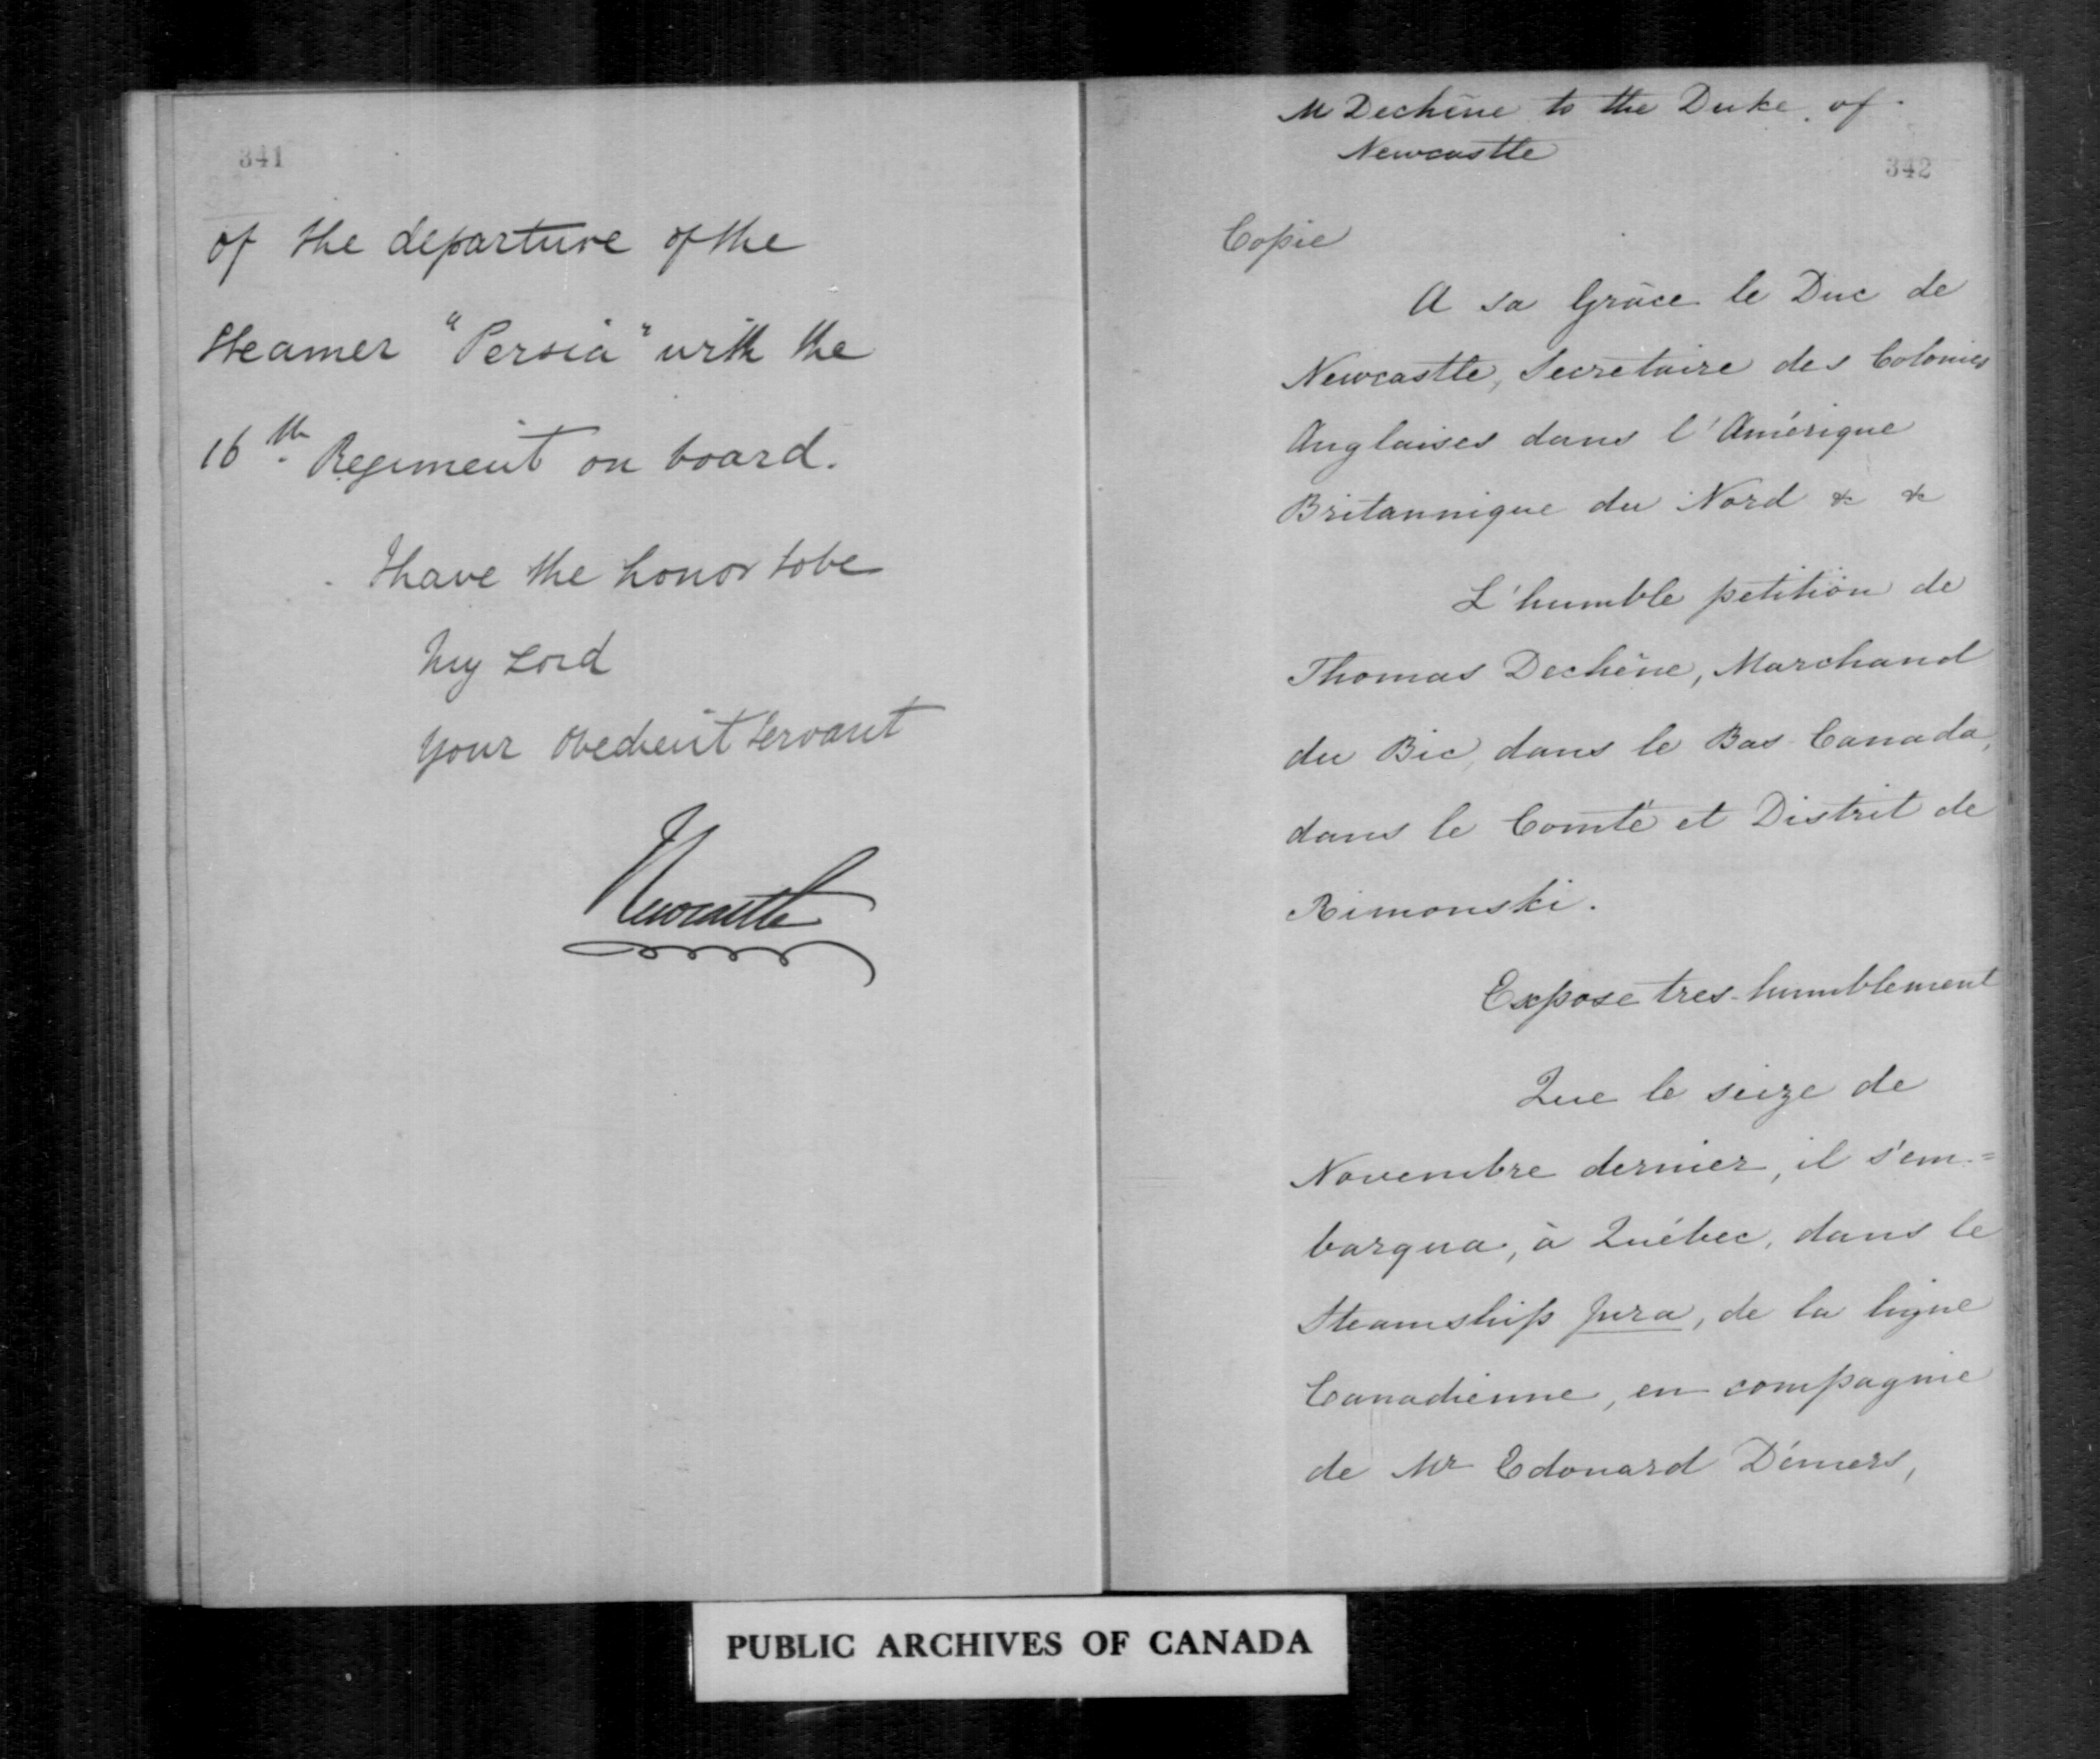 341
of the departure of the
Steamer "Persia" with the
16th Regiment on board.
I have the honor to be
My Lord
Your obedient Servant
Newcastle
M Dechêne to the Duke of
Newcastle
342
Copie
A sa Grâce le Duc de
Newcastle, Secretaire des Colonies
Anglaises dans l'Amérique
Britannique du Nord & &
L'humble petition de
Thomas Dechêne, Marchand
du Bic, dans le Bas-Canada,
dans le Comté et Distrit de
Rimouski.
Expose tres-humblement
Que le seize de
Novembre dernier, il s'em=
barqua, à Québec, dans le
Steamship Jura, de la ligne
Canadienne, en compagnie
de Mr Edouard Démers,
PUBLIC ARCHIVES OF CANADA